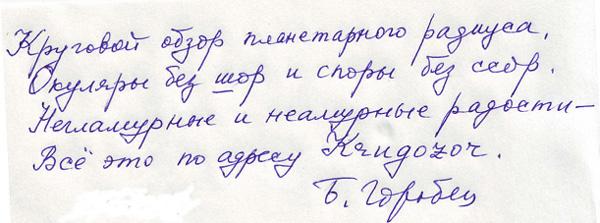 Круговой обзор планетарного радиуса,
Окуляры без шор и споры без ссор.
Негламурные и неамурные радости –
Всё это по адресу Krugozor.
Б. Горобец